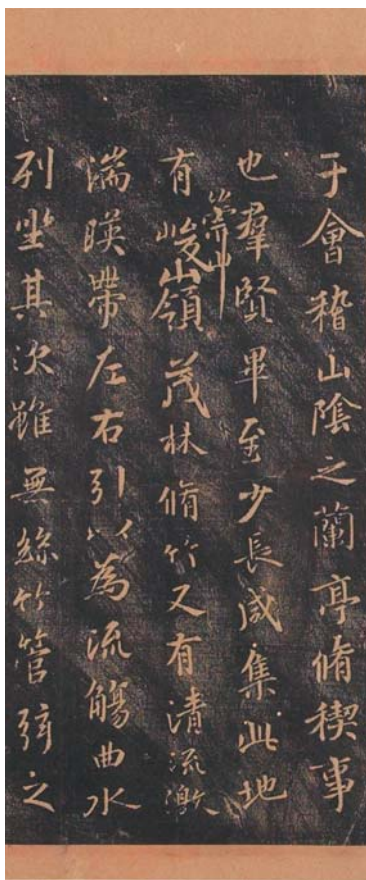 于會稽山陰之蘭亭脩稧事
也羣賢畢至少長咸集此地
有崇山峻領茂林脩竹又有清流激
湍暎帶左右引以為流觴曲水
列坐其次雖無絲竹管弦之